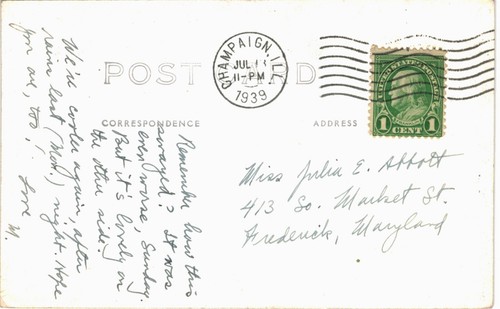 POST CARD
CORRESPONDENCE
ADDRESS
CHAMPAIGN, ILL.
JUL
11-PM
1939
UNITED STATES POSTAGE
1 CENT 1
Remember how this
swayed? It was
even worse, Sunday.
But it's lovely on
the other side.
We're cooler again, after
rain last (Mon.) night. Hope
you are, too!
Love
M.
Miss Julia E. Abbott
413 So. Market St.
Frederick, Maryland